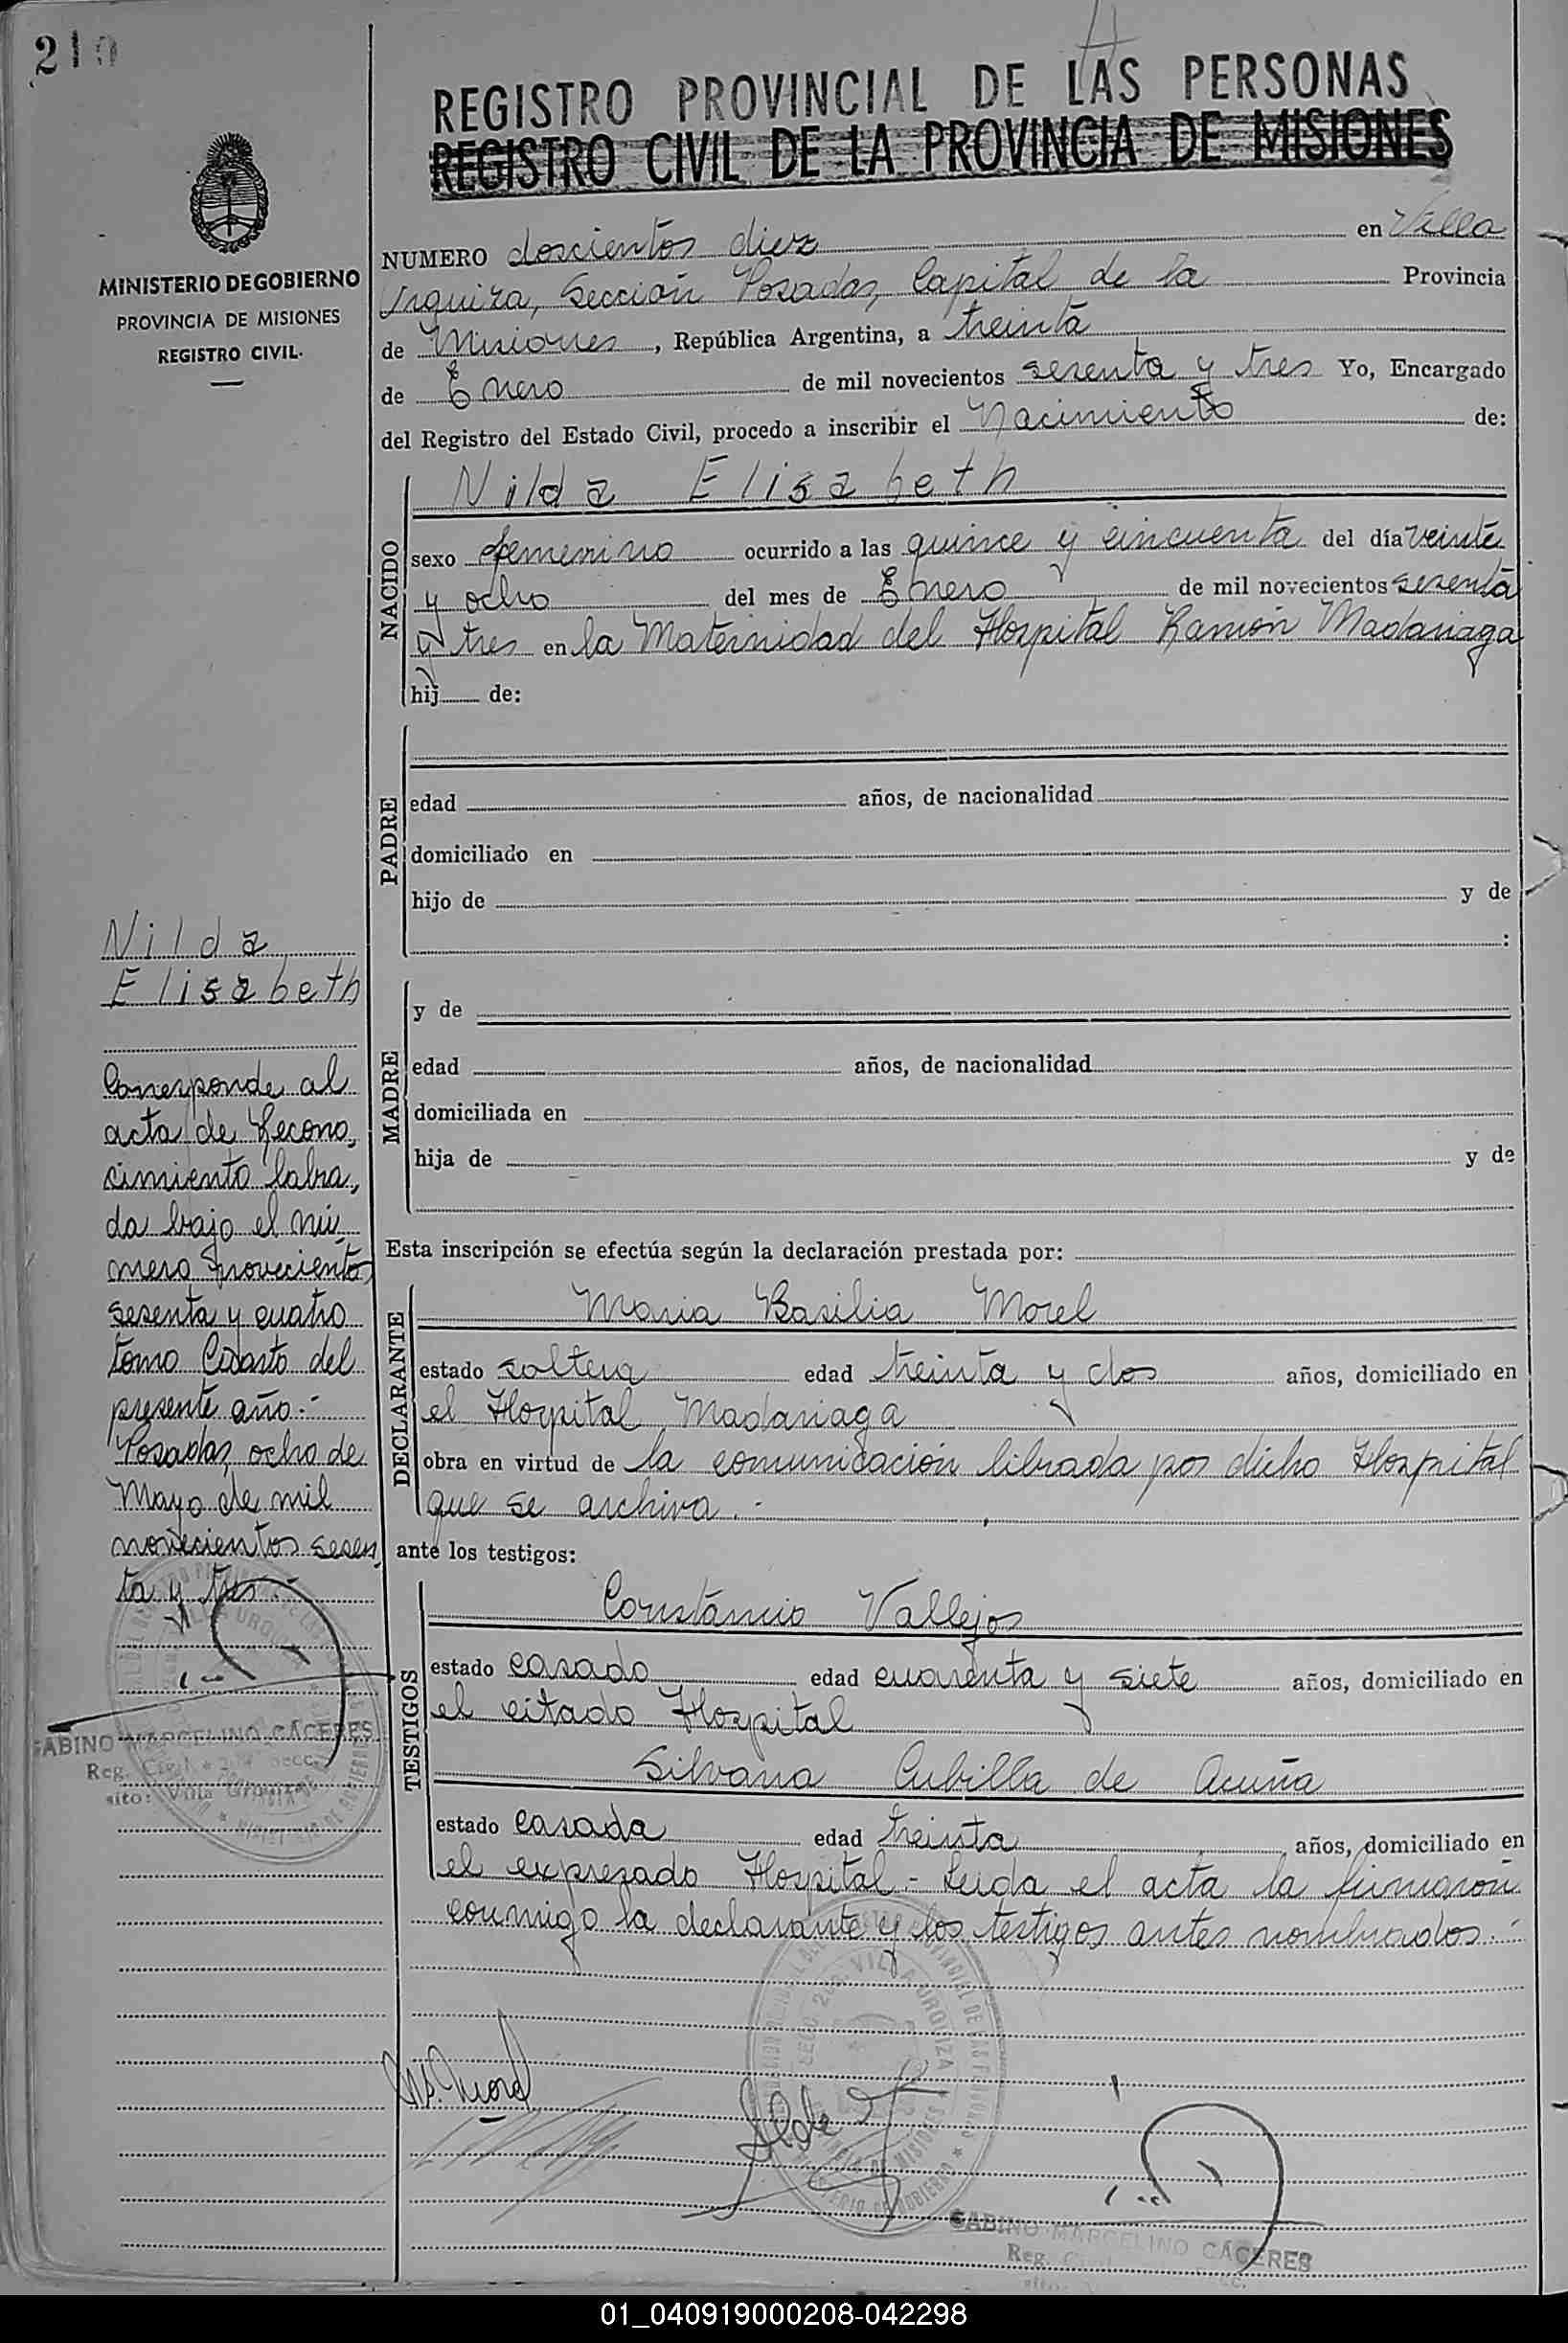 210
REGISTRO PROVINCIAL DE LAS PERSONAS
REGISTRO CIVIL DE LA PROVINCIA DE MISIONES
MINISTERIO DE GOBIERNO
PROVINCIA DE MISIONES
REGISTRO CIVIL.
NUMERO doscientos diez en Villa
Urquiza, Sección Posadas, Capital de la Provincia
de Misiones, República Argentina, a treinta
de Enero de mil novecientos sesenta y tres Yo, Encargado
del Registro del Estado Civil, procedo a inscribir el Nacimiento de:
NACIDO
Nilda Elisabeth
sexo femenino ocurrido a las quince y cincuenta del día veinte
y ocho del mes de Enero de mil novecientos sesenta
y tres en la Maternidad del Hospital Ramón Madariaga
hij de:
PADRE
edad años, de nacionalidad
domiciliado en
hijo de y de
:
MADRE
y de
edad años, de nacionalidad
domiciliada en
hija de y de
Esta inscripción se efectúa según la declaración prestada por:
DECLARANTE
Maria Basilia Morel
estado soltera edad treinta y dos años, domiciliado en
el Hospital Madariaga
obra en virtud de la comunicación librada por dicho Hospital
que se archiva.-
ante los testigos:
TESTIGOS
Constancio Vallejos
estado casado edad cuarenta y siete años, domiciliado en
el citado Hospital
Silvana Cubilla de Acuña
estado casada edad treinta años, domiciliado en
el expresado Hospital.- Leida el acta la firmaron
conmigo la declarante y los testigos antes nombrados.-
Nilda
Elisabeth
Corresponde al
acta de Recono,
cimiento labra,
da bajo el nú,
mero novecientos
sesenta y cuatro
tomo Cuarto del
presente año.-
Posadas, ocho de
Mayo de mil
novecientos sesen,
ta y tres.-
GABINO MARCELINO CÁCERES
Reg. Civil
sito: Villa Urquiza
M.B. Morel
GABINO MARCELINO CÁCERES
Reg. Civil
01_040919000208-042298